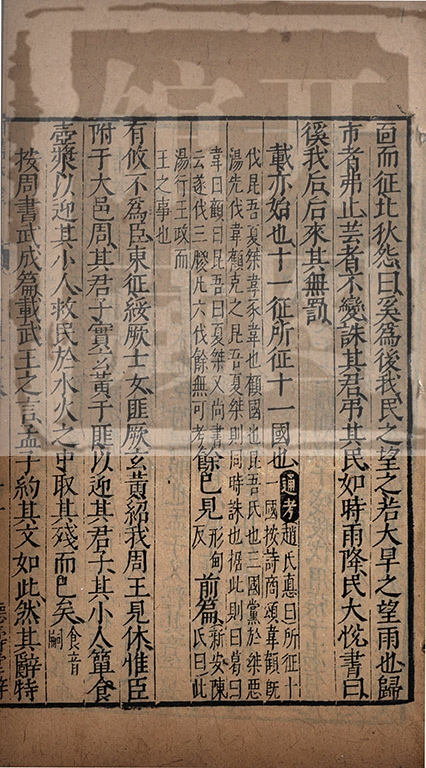 面而征北狄怨曰奚爲後我民之望之若大旱之望雨也歸
市者弗止芸者不變誅其君弔其民如時雨降民大悅書曰
徯我后后來其無罰
載亦始也十一征所征十一國也通考趙氏悳曰所征十
一國按詩商頌韋顧旣
伐昆吾夏桀韋豕韋也顧國也昆吾氏也三國黨於桀惡
湯先伐韋顧克之昆吾夏桀則同時誅也據此則曰葛曰
韋曰顧曰昆吾曰夏桀又尚書
云遂伐三朡凡六伐餘無可考
餘已見形甸反前篇新安陳氏曰此
湯行王政而
王之事也
有攸不爲臣東征綏厥士女匪厥玄黃紹我周王見休惟臣
附于大邑周其君子實玄黃于匪以迎其君子其小人簞食
壺漿以迎其小人救民於水火之中取其殘而已矣食音嗣
按周書武成篇載武王之言孟子約其文如此然其辭特